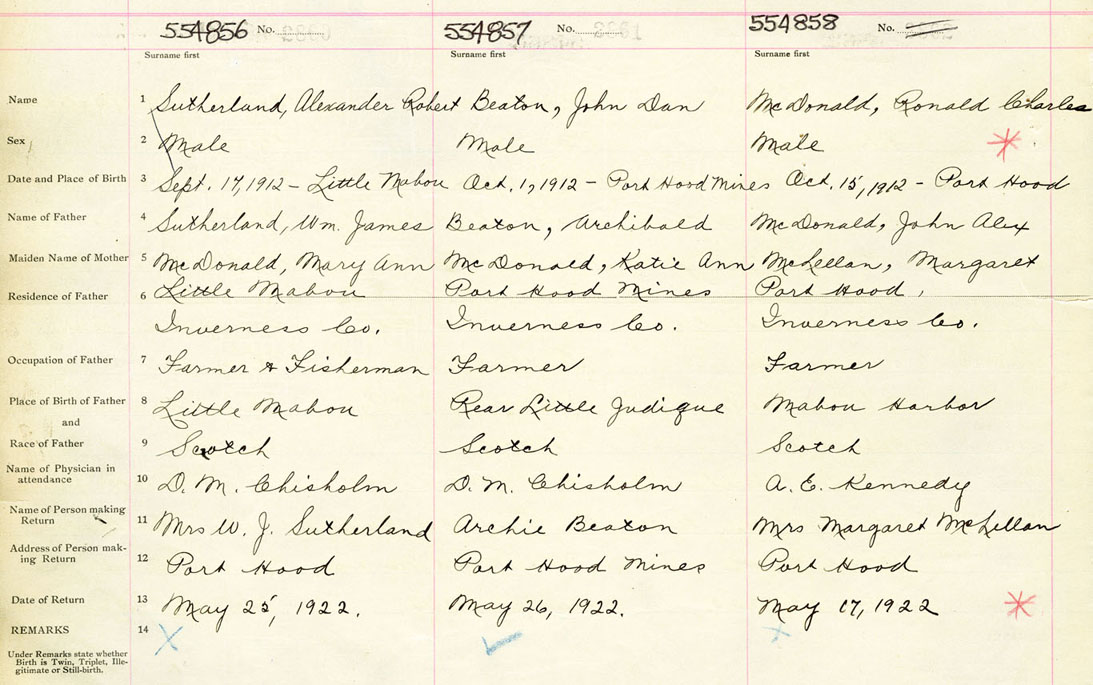 554856 No. 554857 No. 554858 No.
Surname first Surname first Surname first
Name 1 Sutherland, Alexander Robert Beaton, John Dan McDonald, Ronald Charles
Sex 2 Male Male Male
Date and Place of Birth 3 Sept. 17, 1912 - Little Mabou Oct. 1, 1912 - Port Hood Mines Oct. 15, 1912 - Port Hood
Name of Father 4 Sutherland, Wm. James Beaton, Archibald McDonald, John Alex
Maiden Name of Mother 5 McDonald, Mary Ann McDonald, Katie Ann McLellan, Margaret
Residence of Father 6 Little Mabou Port Hood Mines Port Hood,
Inverness Co. Inverness Co. Inverness Co.
Occupation of Father 7 Farmer & Fisherman Farmer Farmer
Place of Birth of Father 8 Little Mabou Rear Little Judique Mabou Harbor
and
Race of Father 9 Scotch Scotch Scotch
Name of Physician in
attendance 10 D. M. Chisholm D. M. Chisholm A. E. Kennedy
Name of Person making
Return 11 Mrs W. J. Sutherland Archie Beaton Mrs Margaret McLellan
Address of Person mak-
ing Return 12 Port Hood Port Hood Mines Port Hood
Date of Return 13 May 25, 1922. May 26, 1922. May 17, 1922
REMARKS 14
Under Remarks state whether
Birth is Twin, Triplet, Ille-
gitimate or Still-birth.